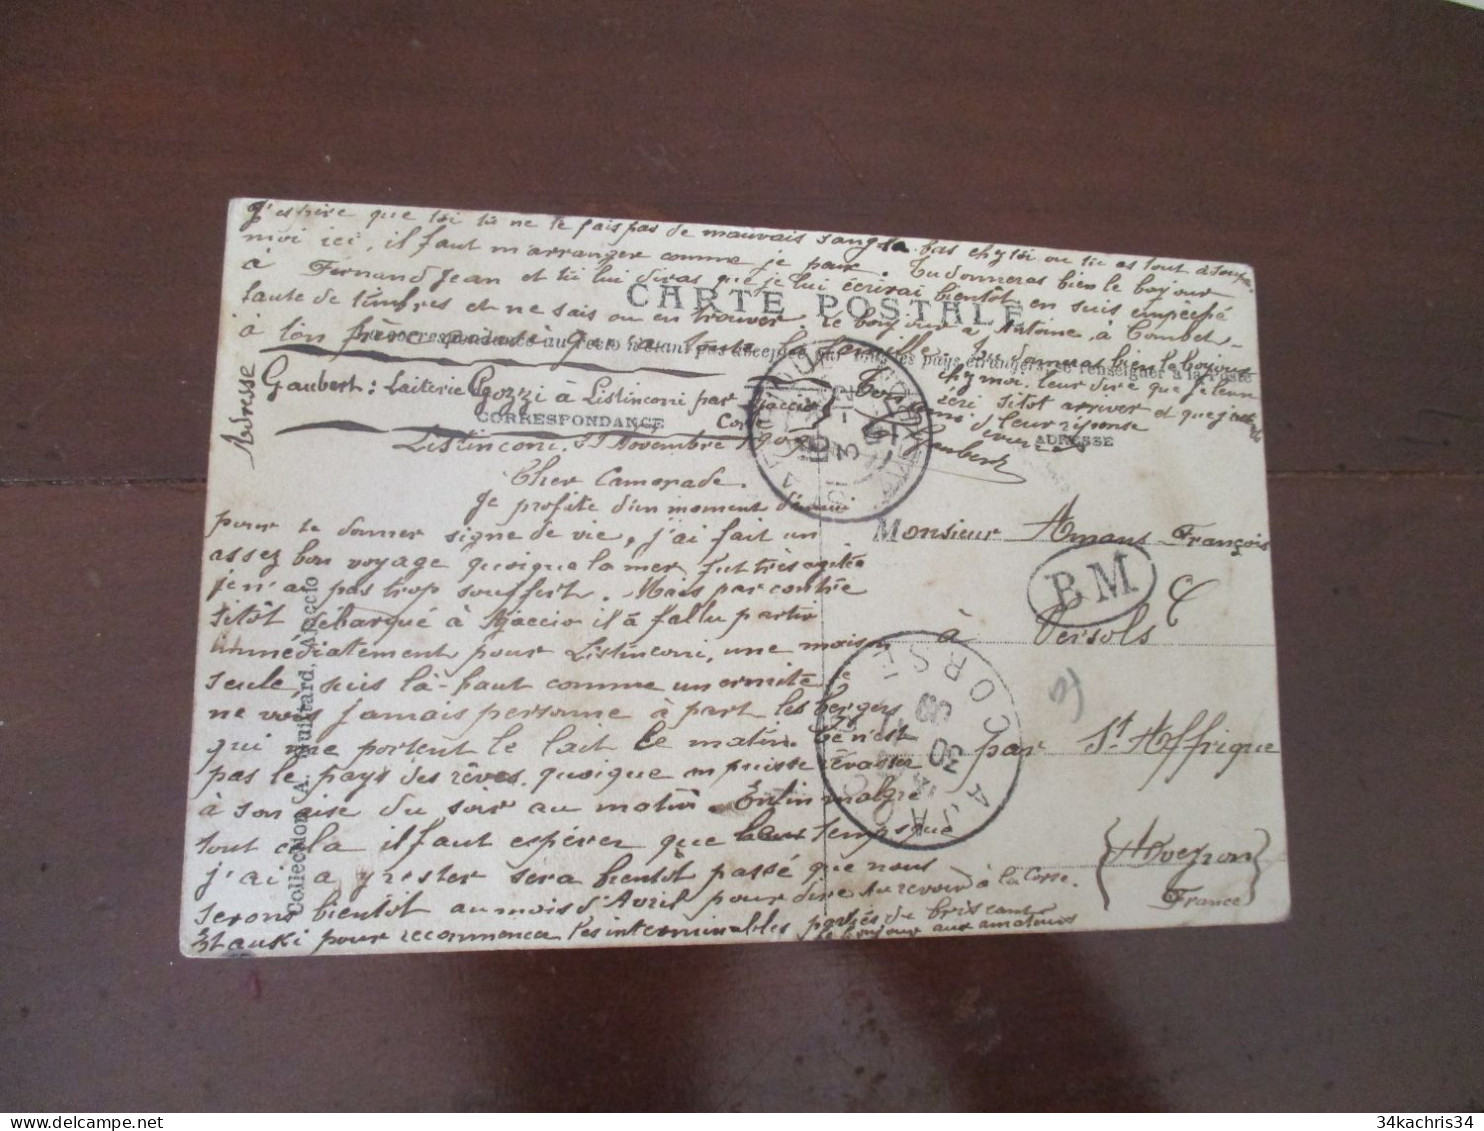 J'espère que toi tu ne te fais pas de mauvais sang la bas chez toi ou tu es tout à
moi ici, il faut m'arranger comme je peux. Tu donneras bien le bonjour
à Fernand Jean et tu lui diras que je lui écrirai bientôt, en suis empêché
faute de timbres et ne sais ou en trouver. Le bonjour a Antoine, à Combet
CARTE POSTALE
à ton frère ainsi que a toute la famille. Tu donneras bien le bonjour
La correspondance au recto n'étant pas acceptée par tous les pays étrangers, se renseigner à la Poste
chez moi. leur dire que je leur
écri sitot arriver et que j'attends
leur réponse
Adresse
Gaubert: Laiterie Pozzi à Listinconi par Ajaccio
Corse
CORRESPONDANCE
ADRESSE
Listinconi, Novembre 190
Gaubert
Cher Camarade.
Je profite d'un moment
pour te donner signe de vie, j'ai fait un
assez bon voyage quoique la mer fut très agitée
je n'ai pas trop souffert. Mais par contre
sitôt débarqué à Ajaccio il à fallu partir
immédiatement pour Listinconi, une maison
seule, suis là-haut comme un ermite je
ne vois jamais personne à part les bergers
qui me portent le lait le matin. Ce n'est
pas le pays des rêves, quoique on puisse rêvasser
à son aise du soir au matin. Enfin malgré
tout cela il faut espérer que temps que
j'ai a y rester sera bientôt passé que nous
serons bientôt au mois d'Avril pour dire Au revoir à la Corse.
pour recommencer les interminables parties de
le bonjour aux amateurs
Monsieur Amans François
BM
à Versols
par St Affrique
(Aveyron)
France
AJACCIO CORSE
30
Collection A. Guittard, Ajaccio
34kachris34